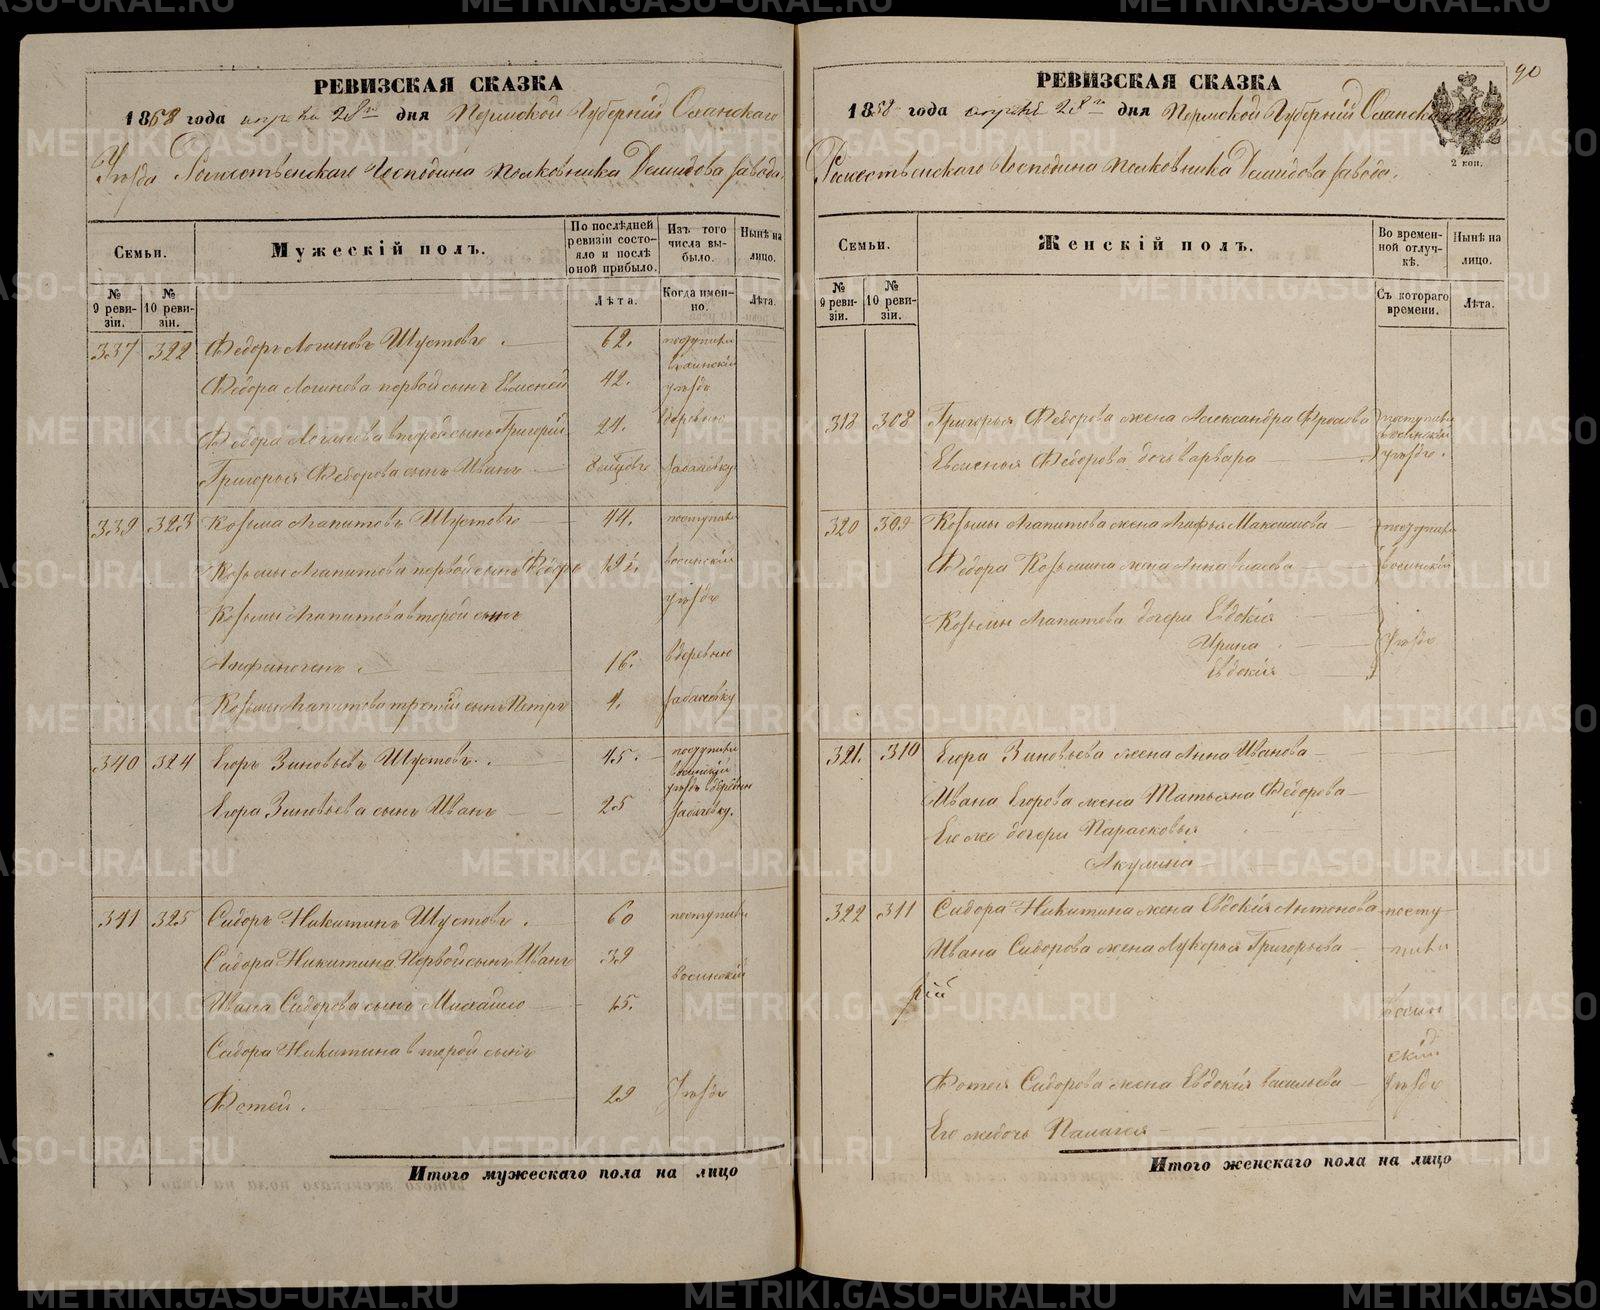 РЕВИЗСКАЯ СКАЗКА
1858 года апреля 28го дня Пермской Губернiи Оханскаго
Уѣзда Рождественскаго Господина Полковника Демидова завода.
Семьи.
Мужескiй полъ.
По послѣдней ревизiи состояло и послѣ оной прибыло.
Изъ того числа выбыло.
Нынѣ на лицо.
№ 9 ревизiи.
№ 10 ревизiи.
Лѣта.
Когда именно.
Лѣта.
337 322 Федоръ Логиновъ Шустовъ 62. поступили
Федора Логинова первой сынъ Евменей 42. в осинскiй уѣздъ
Федора Логинова второй сынъ Григорiй 24. в деревню
Григорья Федорова сынъ Иванъ
339 323 Козьма Агапитовъ Шустовъ 44. поступили
Козьмы Агапитова первой сынъ Федоръ 19 в осинскiй
уѣздъ
Козьмы Агапитова второй сынъ
Анфиногенъ. 16. в деревню
Козьмы Агапитова третiй сынъ Петръ 4.
340 324 Егоръ Зиновьевъ Шустовъ. 45. поступили
в осинскiй
уѣздъ в деревню
Егора Зиновьева сынъ Иванъ 25
341 325 Сидоръ Никитинъ Шустовъ. 60 поступили
Сидора Никитина Первой сынъ Иванъ 39 в осинскiй
Ивана Сидорова сынъ Михайло 15.
Сидора Никитина второй сынъ
Фотей. 29 уѣздъ
Итого мужескаго пола на лицо
90
РЕВИЗСКАЯ СКАЗКА
1858 года апреля 28го дня Пермской Губернiи Оханскаго
2 коп.
Рождественскаго Господина Полковника Демидова завода.
Семьи.
Женскiй полъ.
Во временной отлучкѣ.
Нынѣ на лицо.
№ 9 ревизiи.
№ 10 ревизiи.
Съ котораго времени.
Лѣта.
318 308 Григорья Федорова жена Александра Фролова поступили
в осинскiй
Евменья Федорова дочь Варвара уѣздъ.
320 309 Козьмы Агапитова жена Агафья Максимова поступили
Федора Козьмина жена Анна Власова в осинскiй
Козьмы Агапитова дочери Евдокiя
Ирина уѣздъ
Евдокiя
321. 310 Егора Зиновьева жена Анна Иванова
Ивана Егорова жена Татьяна Федорова
Ево же дочери Парасковья
Акулина
322 311 Сидора Никитина жена Евдокiя Антонова посту
Ивана Сидорова жена Лукерья Григорьева пили
в осин
скiй
Фотея Сидорова жена Евдокiя Васильева уѣздъ
Его же дочь Палагея
Итого женскаго пола на лицо
METRIKI.GASO-URAL.RU